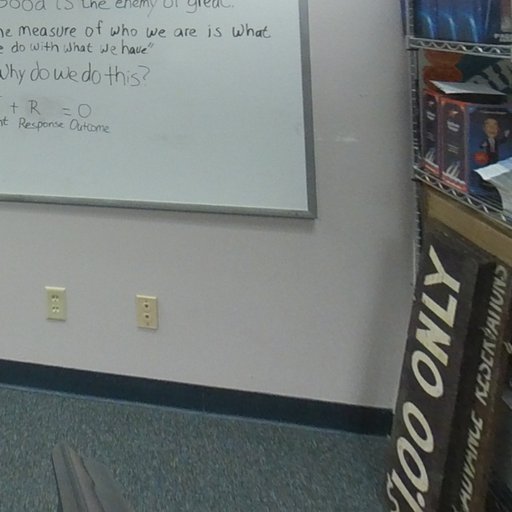 is the enemy of great.
measure of who we are is what
do with what we have"
Why do we do this?
+ R = O
Response Outcome
1.00 ONLY
ADVANCE RESERVATIONS